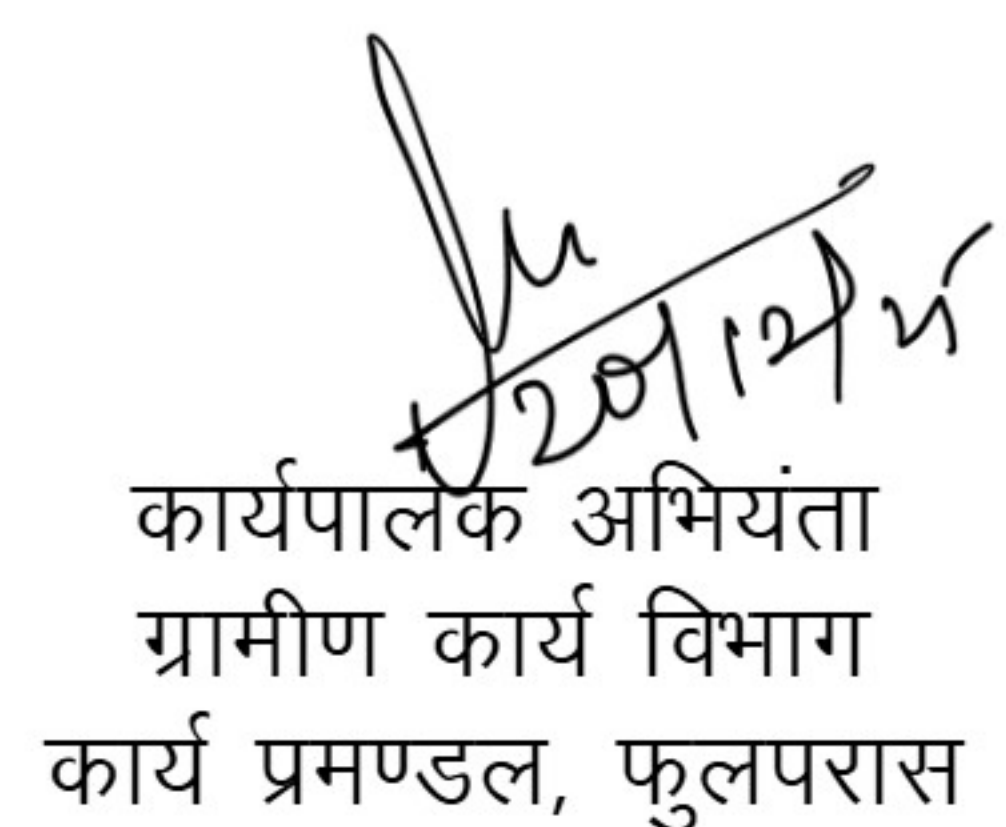 कार्यपालक अभियंता
ग्रामीण कार्य विभाग
कार्य प्रमण्डल, फुलपरास